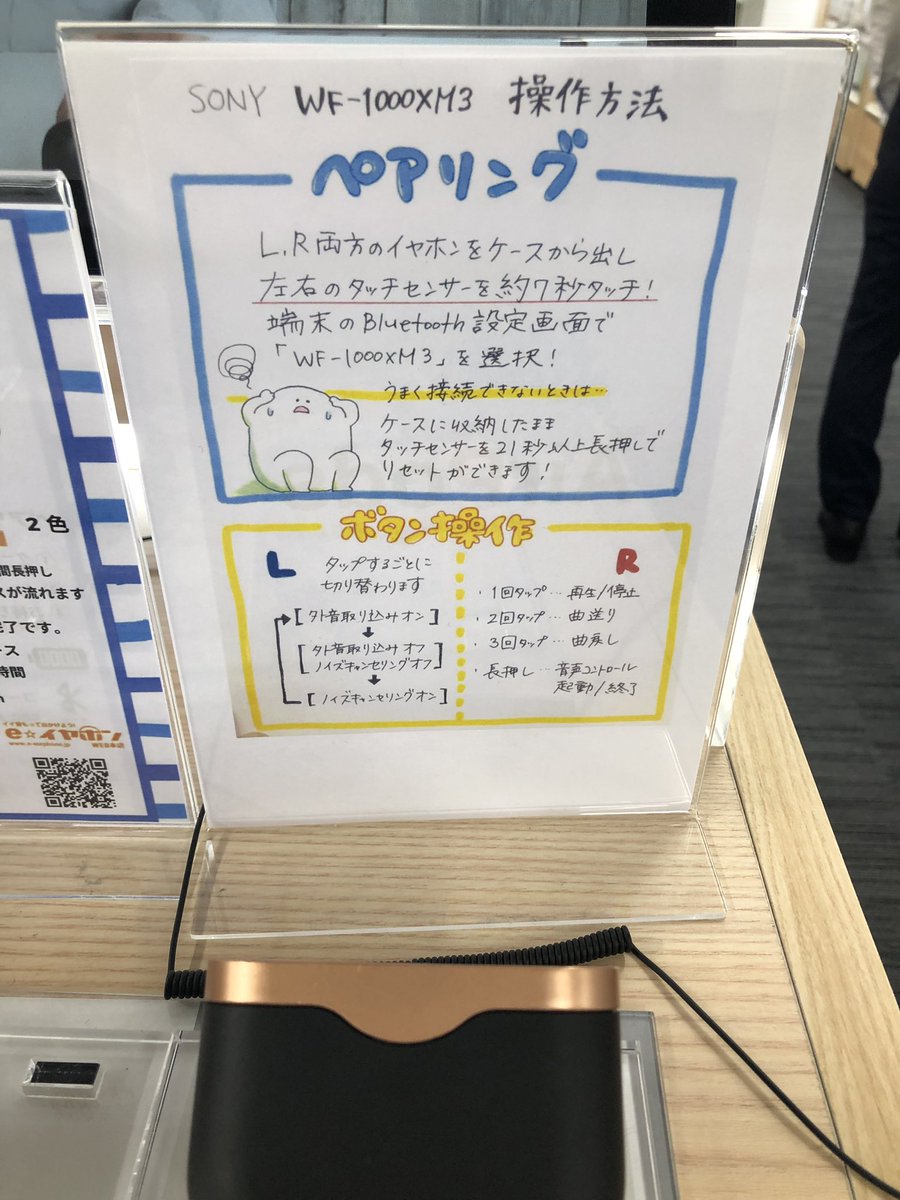 SONY WF-1000XM3 操作方法
ペアリング
L,R両方のイヤホンをケースから出し
左右のタッチセンサーを約7秒タッチ!
端末のBluetooth設定画面で
「WF-1000XM3」を選択!
うまく接続できないときは…
ケースに収納したまま
タッチセンサーを21秒以上長押しで
リセットができます!
ボタン操作
L
タップするごとに
切り替わります
[外音取り込みオン]
[外音取り込みオフ
ノイズキャンセリングオフ]
[ノイズキャンセリングオン]
R
・1回タップ…再生/停止
・2回タップ…曲送り
・3回タップ…曲戻し
・長押し…音声コントロール
起動/終了
2色
間長押し
スが流れます
完了です。
ース
時間
e☆イヤホン